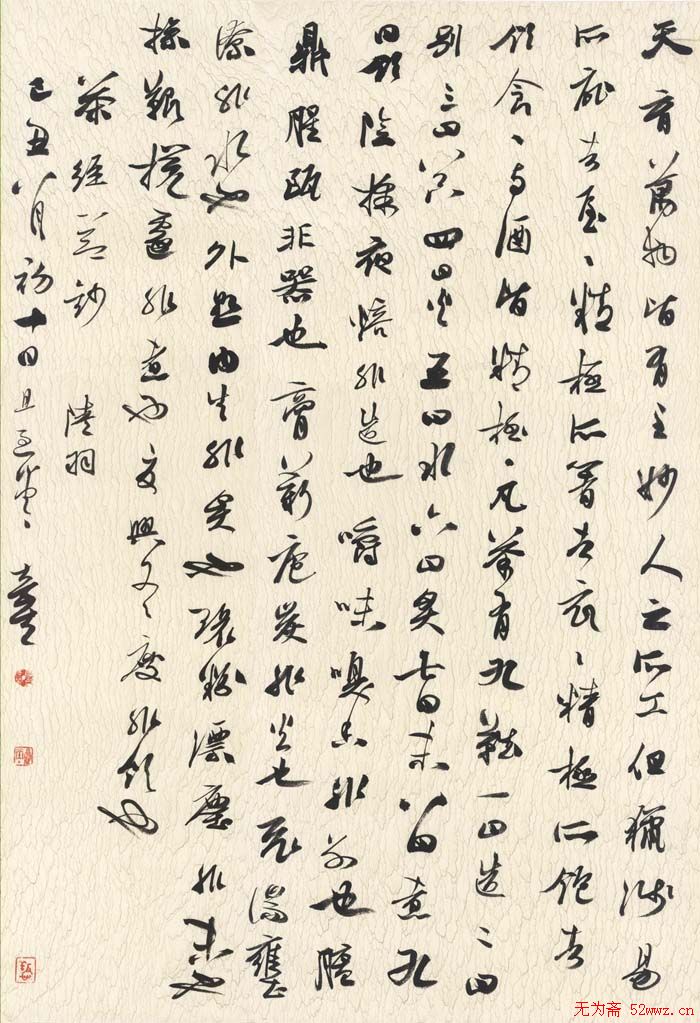 天育萬物皆有至妙人之所工但獵淺易
所庇者屋〻精極所著者衣〻精極所飽者
飲食〻與酒皆精極凡茶有九難一曰造二曰
別三曰器四曰火五曰水六曰炙七曰末八曰煮九
曰飲陰採夜焙非造也嚼味嗅香非別也膻
鼎腥甌非器也膏薪庖炭非火也飛湍壅
潦非水也外熟內生非炙也碧粉漂塵非末也
操艱攪遽非煮也夏興冬廢非飲也
茶經鈔 陸羽
己丑八月初十日
无为斋 52wwz.cn